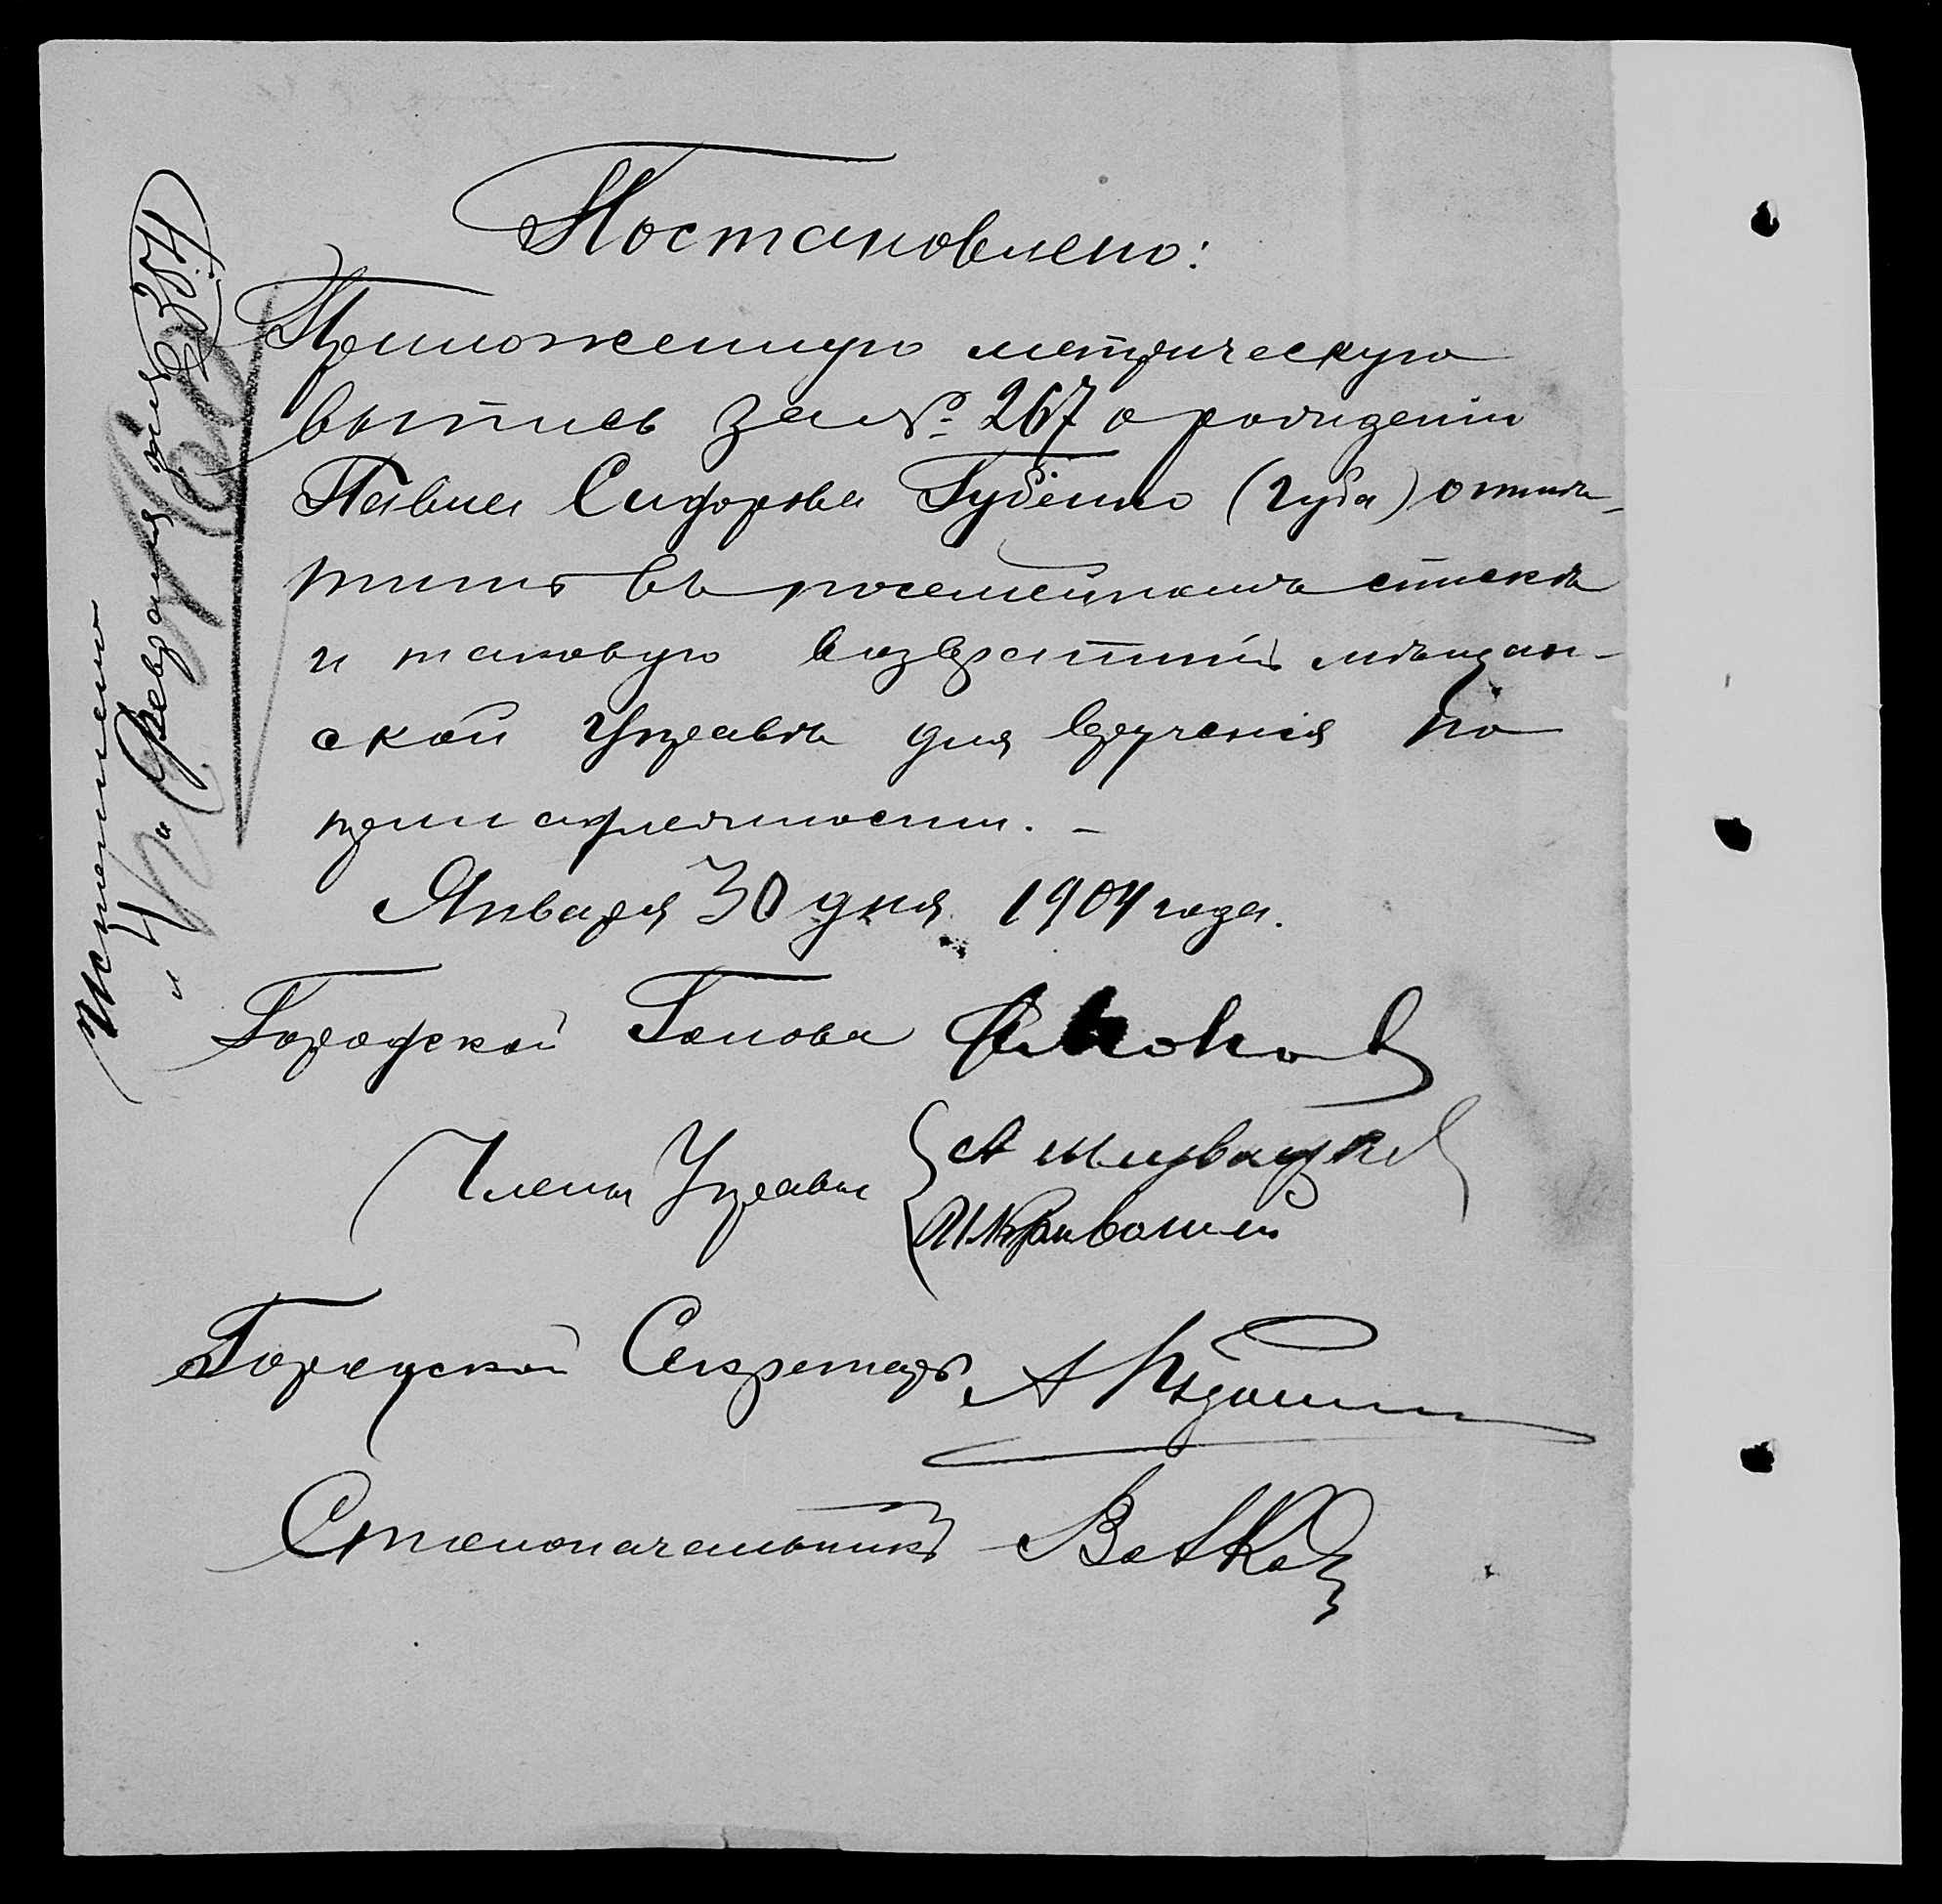 Постановлено:
Приложенную метрическую
выпись за № 267 о рождении
Павла Сидорова Губенко (Губа) отмѣ-
тить въ посемейномъ спискѣ
и таковую возвратить мѣщан-
ской Управѣ для врученія по
принадлежности. –
Января 30 дня 1904 года.
Городской Голова
Члены Управы
Городской Секретарь А
Столоначальникъ
Исполнено
"4" Февраля дня № 354